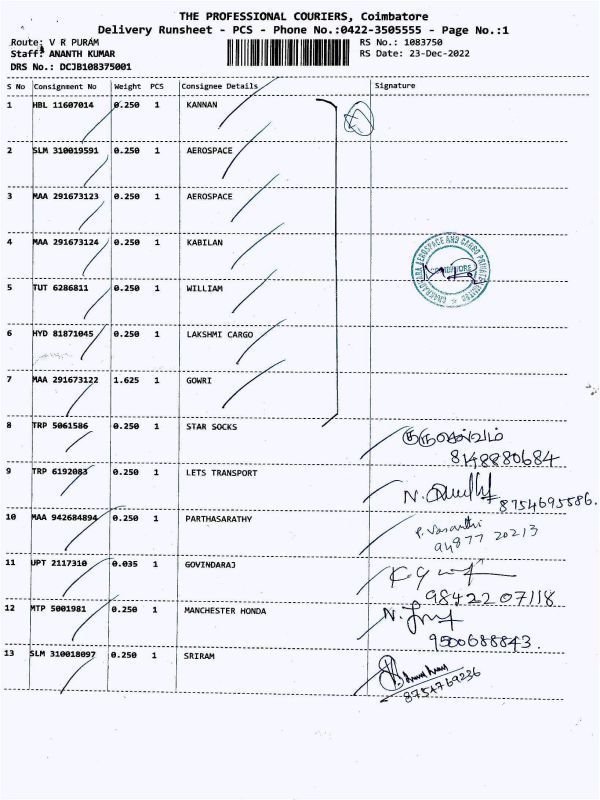 THE PROFESSIONAL COURIERS, Coimbatore
Delivery Runsheet - PCS - Phone No.:0422-3505555 - Page No.:1
Route: V R PURAM RS No.: 1083750
Staff: ANANTH KUMAR RS Date: 23-Dec-2022
DRS No.: DCJB108375001
S No Consignment No Weight PCS Consignee Details Signature
1 HBL 11607014 0.250 1 KANNAN
2 SLM 310019591 0.250 1 AEROSPACE
3 MAA 291673123 0.250 1 AEROSPACE
4 MAA 291673124 0.250 1 KABILAN
5 TUT 6286811 0.250 1 WILLIAM
6 HYD 81871045 0.250 1 LAKSHMI CARGO
7 MAA 291673122 1.625 1 GOWRI
8 TRP 5061586 0.250 1 STAR SOCKS
8148880684
9 TRP 6192083 0.250 1 LETS TRANSPORT
8754695586.
10 MAA 942684894 0.250 1 PARTHASARATHY P. Vasanthi
94877 20213
11 UPT 2117310 0.035 1 GOVINDARAJ
98422 07118
12 MTP 5001981 0.250 1 MANCHESTER HONDA
9500688843.
13 SLM 310018097 0.250 1 SRIRAM
8754769236